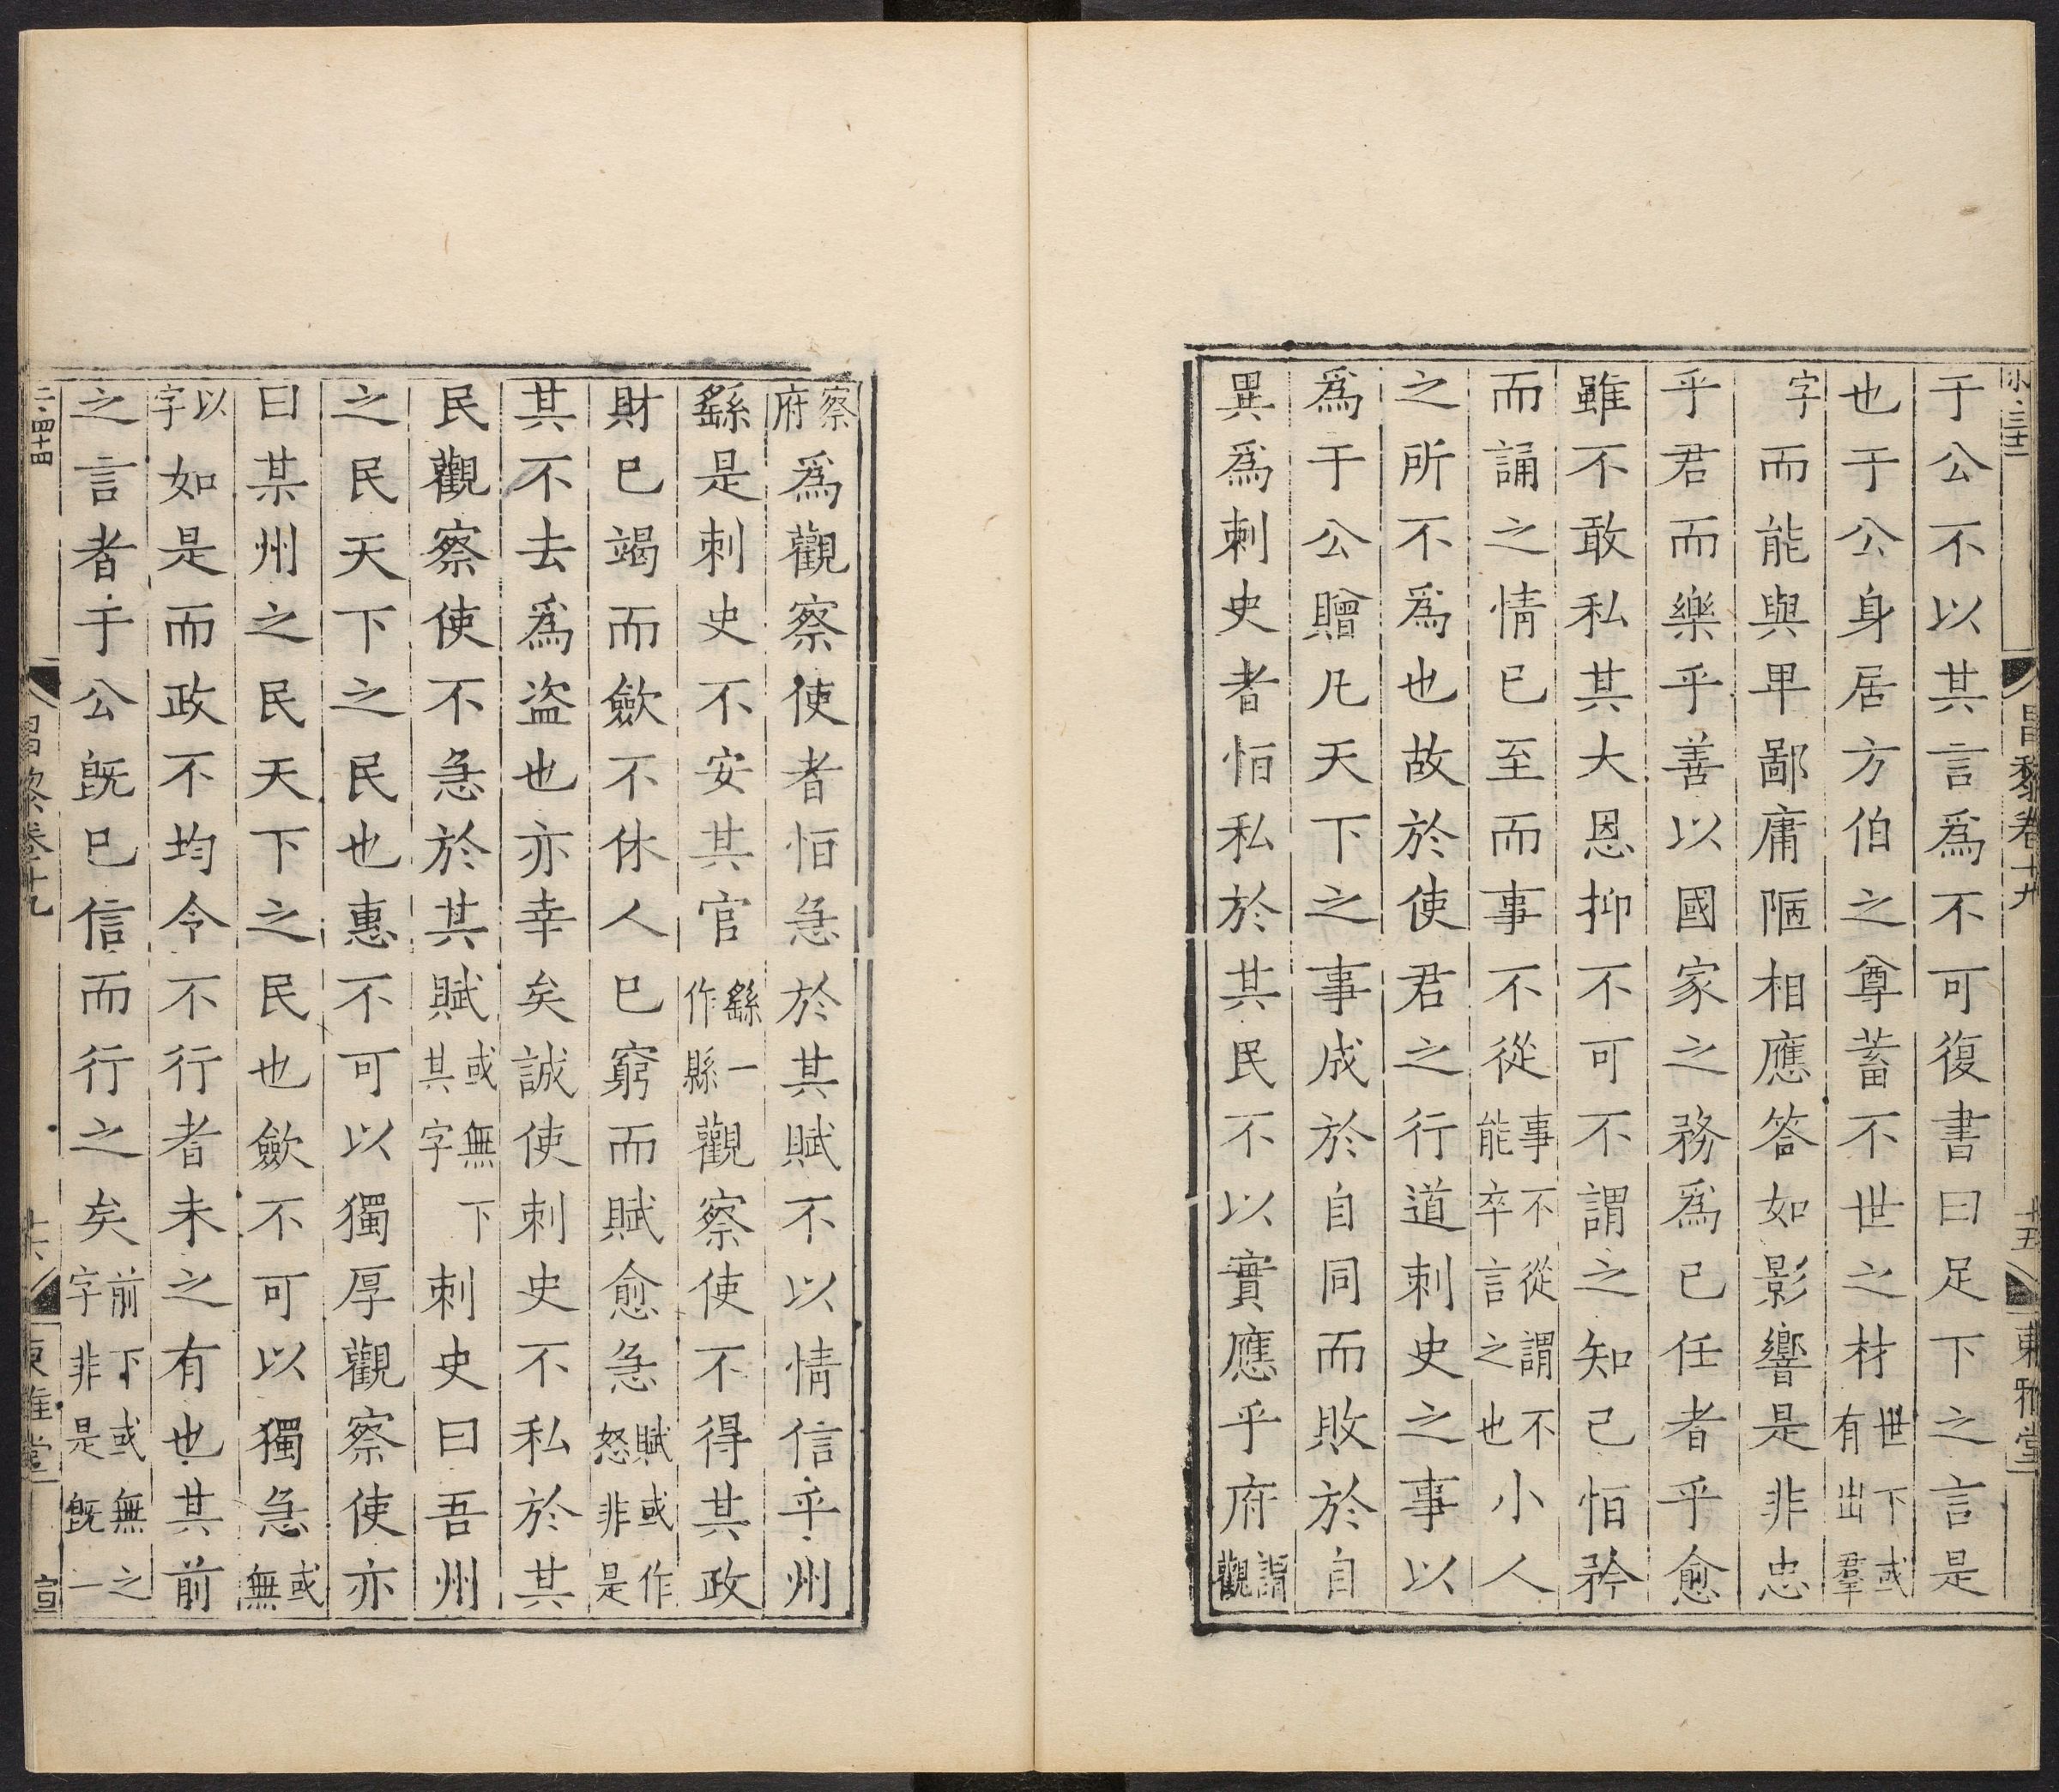 小三十二
昌黎卷十九
十五
東雅堂
于公不以其言爲不可復書曰足下之言是
也于公身居方伯之尊蓄不世之材世下或有出羣
字而能與卑鄙庸陋相應答如影響是非忠
乎君而樂乎善以國家之務爲己任者乎愈
雖不敢私其大恩抑不可不謂之知己恒矜
而誦之情已至而事不從事不從謂不能卒言之也小人
之所不爲也故於使君之行道刺史之事以
爲于公贈凡天下之事成於自同而敗於自
異爲刺史者恒私於其民不以實應乎府謂觀
察府爲觀察使者恒急於其賦不以情信乎州
繇是刺史不安其官繇一作縣觀察使不得其政
財已竭而斂不休人已窮而賦愈急賦或作怒非是
其不去爲盜也亦幸矣誠使刺史不私於其
民觀察使不急於其賦或無其字下刺史曰吾州
之民天下之民也惠不可以獨厚觀察使亦
曰某州之民天下之民也斂不可以獨急或無
以字如是而政不均令不行者未之有也其前
之言者于公既已信而行之矣前下或無之字非是既一
二四十四
昌黎卷十九
十六
東雅堂
宣